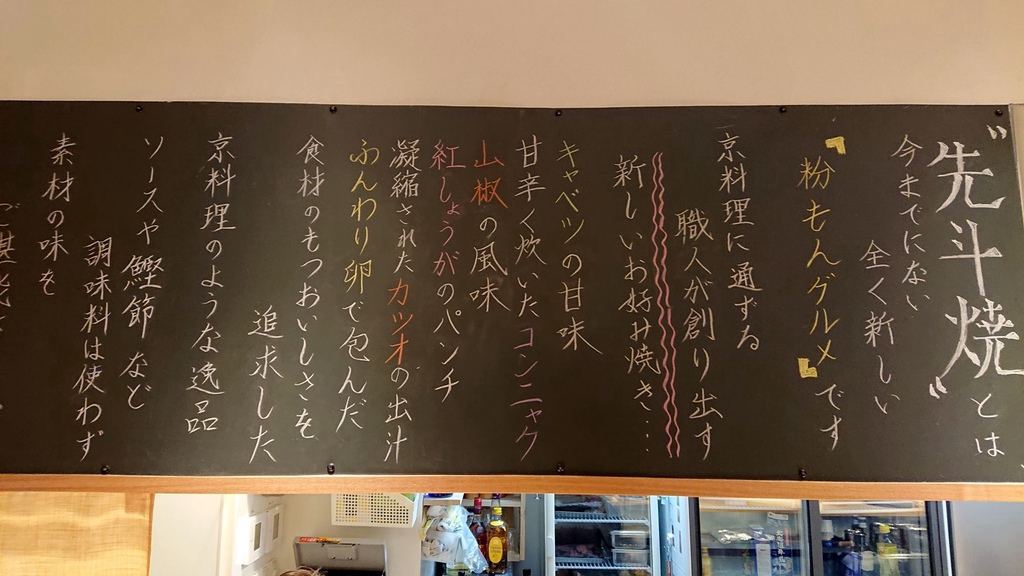 〝先斗焼〟とは
今までにない
全く新しい
『粉もんグルメ』です
京料理に通ずる
職人が創り出す
新しいお好み焼き・・・
キャベツの甘味
甘辛く炊いたコンニャク
山椒の風味
紅しょうがのパンチ
凝縮されたカツオの出汁
ふんわり卵で包んだ
食材のもつおいしさを
追求した
京料理のような逸品
ソースや鰹節など
調味料は使わず
素材の味を